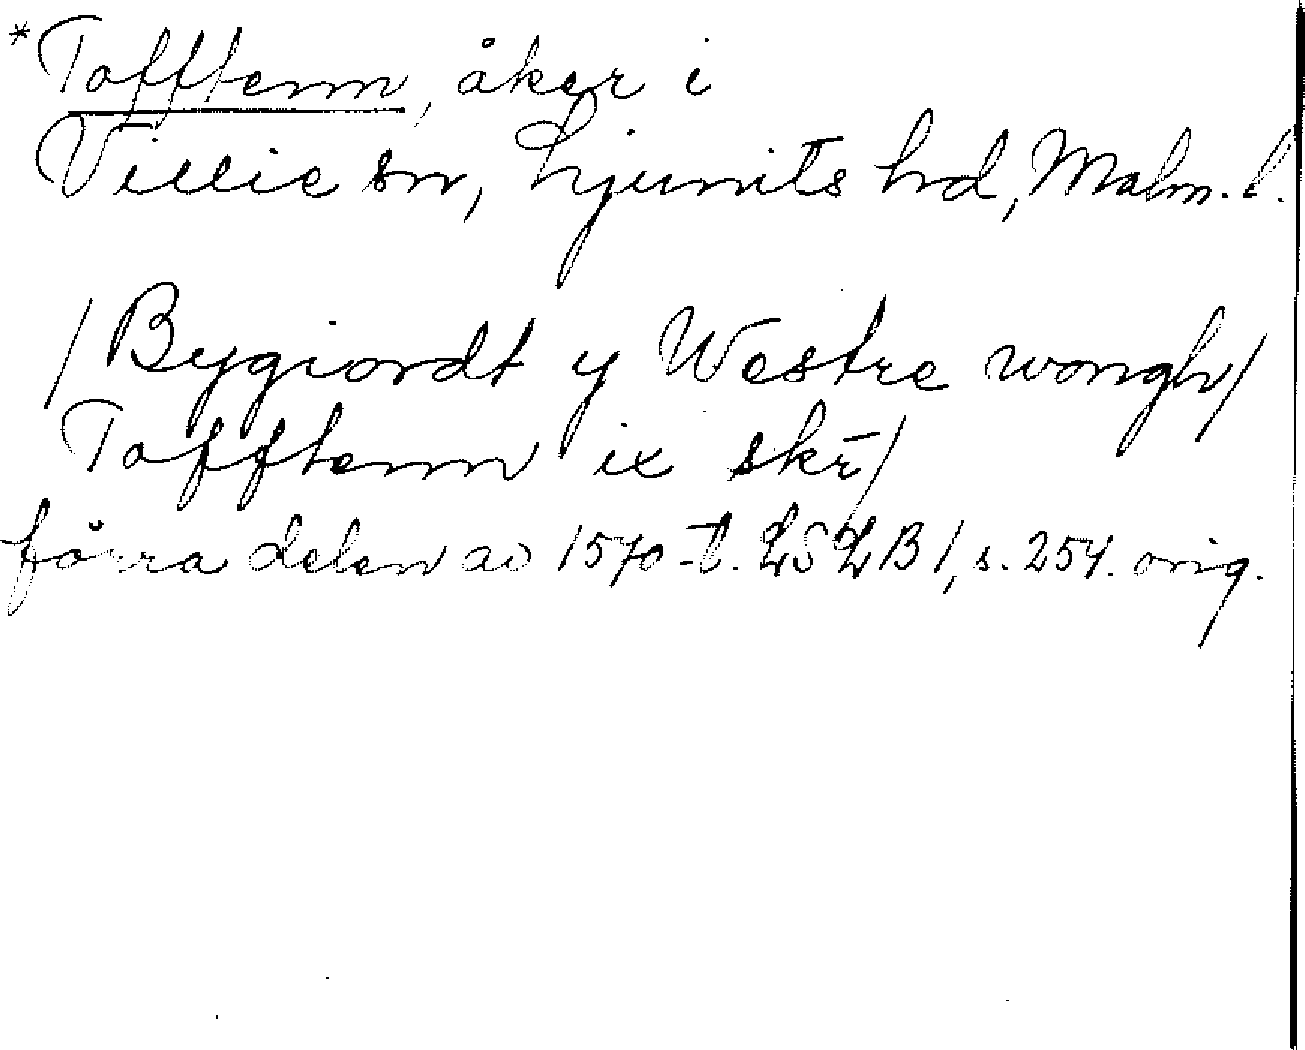 *Tofftenn, åker i
Villie sn, Ljunits hd, Malm. l.
/Bygiordt y Westre wongh/
Tofftenn ix skr̄/
förra delen av 1570-t. LSLB 1, s. 254. orig.